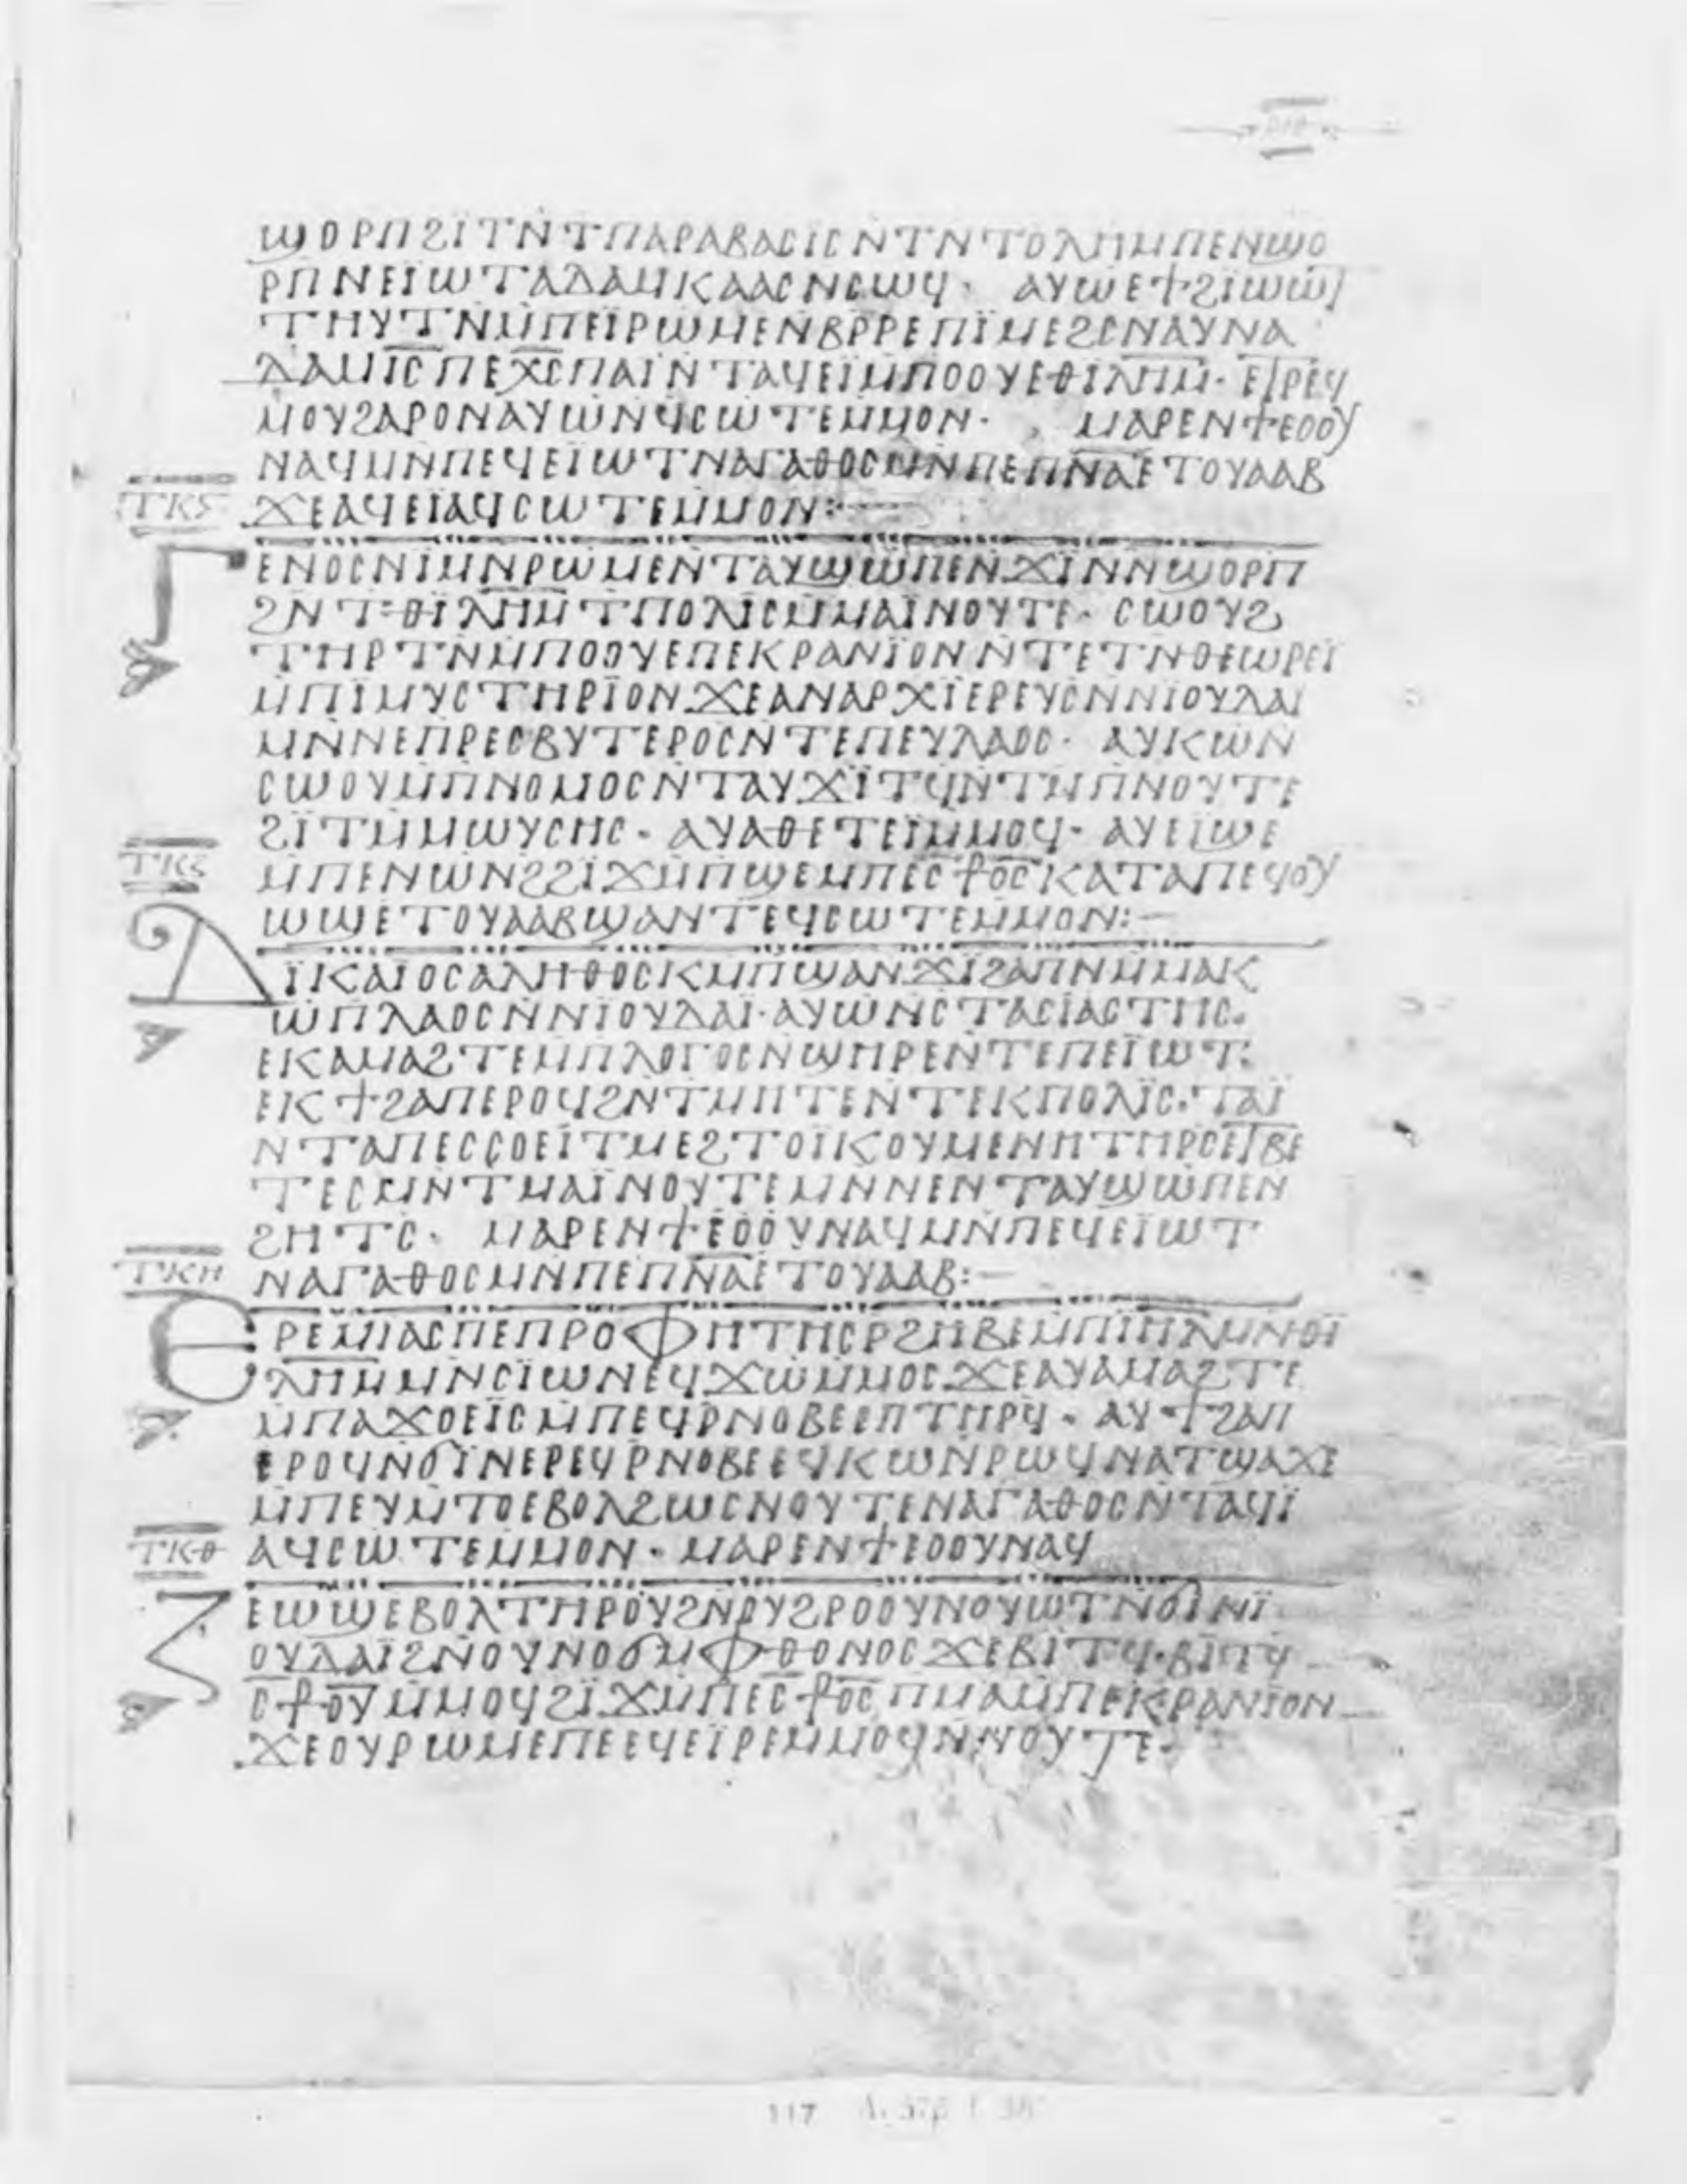 ⲣⲓⲑ
ϣⲟⲣⲡϩⲓⲧⲛ̄ⲧⲡⲁⲣⲁⲃⲁⲥⲓⲥⲛ̄ⲧⲛ̄ⲧⲟⲗⲏⲙ̄ⲡⲉⲛϣⲟ
ⲣⲡⲛⲉⲓⲱⲧⲁⲇⲁⲙⲕⲁⲁⲥⲛ̄ⲥⲱϥ· ⲁⲩⲱⲉϯϩⲓⲱⲱ
ⲧⲏⲩⲧⲛ̄ⲙ̄ⲡⲉⲓⲣⲱⲙⲉⲛⲃⲣ̄ⲣⲉⲡⲓⲙⲉϩⲥⲛⲁⲩⲛⲁ
ⲇⲁⲙⲓ̅ⲥ̅ⲡⲉⲭ̅ⲥ̅ⲡⲁⲓⲛ̄ⲧⲁϥⲉⲓⲙ̄ⲡⲟⲟⲩⲉⲑⲓ̅ⲗ̅ⲏ̅ⲙ̅· ⲉⲧⲣⲉϥ
ⲙⲟⲩϩⲁⲣⲟⲛⲁⲩⲱⲛ̄ϥⲥⲱⲧⲉⲙ̄ⲙⲟⲛ· ⲙⲁⲣⲉⲛϯⲉⲟⲟⲩ
ⲛⲁϥⲙⲛ̄ⲡⲉϥⲉⲓⲱⲧⲛⲁⲅⲁⲑⲟⲥⲙⲛ̄ⲡⲉⲡ̅ⲛ̅ⲁ̅ⲉⲧⲟⲩⲁⲁⲃ
ⲧⲕⲋ ϫⲉⲁϥⲉⲓⲁϥⲥⲱⲧⲉⲙ̄ⲙⲟⲛ:—
ⲅⲉⲛⲟⲥⲛⲓⲙⲛ̄ⲣⲱⲙⲉⲛ̄ⲧⲁⲩϣⲱⲡⲉⲛ̄ϫⲓⲛⲛ̄ϣⲟⲣⲡ
ϩⲛ̄ⲧ·ⲑⲓ̅ⲗ̅ⲏ̅ⲙ̅ⲧⲡⲟⲗⲓⲥⲙ̄ⲙⲁⲓⲛⲟⲩⲧⲉ· ⲥⲱⲟⲩϩ
ⲧⲏⲣⲧⲛ̄ⲙ̄ⲡⲟⲟⲩⲉⲡⲉⲕⲣⲁⲛⲓⲟⲛⲛ̄ⲧⲉⲧⲛ̄ⲑⲉⲱⲣⲉⲓ
ⲙ̄ⲡⲓⲙⲩⲥⲧⲏⲣⲓⲟⲛϫⲉⲁⲛⲁⲣⲭⲓⲉⲣⲉⲩⲥⲛ̄ⲛⲓⲟⲩⲇⲁⲓ
ⲙⲛ̄ⲛⲉⲡⲣⲉⲥⲃⲩⲧⲉⲣⲟⲥⲛ̄ⲧⲉⲡⲉⲩⲗⲁⲟⲥ· ⲁⲩⲕⲱⲛ̄
ⲥⲱⲟⲩⲙ̄ⲡⲛⲟⲙⲟⲥⲛ̄ⲧⲁⲩϫⲓⲧϥⲛ̄ⲧⲙ̄ⲡⲛⲟⲩⲧⲉ
ϩⲓⲧⲙ̄ⲙⲱⲩⲥⲏⲥ· ⲁⲩⲁⲑⲉⲧⲉⲓⲙ̄ⲙⲟϥ· ⲁⲩⲉⲓϣⲉ
ⲙ̄ⲡⲉⲛⲱⲛϩϩⲓϫⲙ̄ⲡϣⲉⲙ̄ⲡⲉⲥ̅⳨ⲟ̅ⲥ̅ⲕⲁⲧⲁⲡⲉϥⲟⲩ
ⲧⲕⲍ ⲱϣⲉⲧⲟⲩⲁⲁⲃϣⲁⲛⲧⲉϥⲥⲱⲧⲉⲙ̄ⲙⲟⲛ:—
ⲇⲓⲕⲁⲓⲟⲥⲁⲗⲏⲑⲟⲥⲕⲙ̄ⲡϣⲁⲛ̄ϫⲓϩⲁⲡⲛⲙ̄ⲙⲁⲕ
ⲱⲡⲗⲁⲟⲥⲛ̄ⲛⲓⲟⲩⲇⲁⲓ·ⲁⲩⲱⲛ̄ⲥⲧⲁⲥⲓⲁⲥⲧⲏⲥ·
ⲉⲕⲁⲙⲁϩⲧⲉⲙ̄ⲡⲗⲟⲅⲟⲥⲛ̄ϣⲏⲣⲉⲛ̄ⲧⲉⲡⲉⲓⲱⲧ:
ⲉⲕϯϩⲁⲡⲉⲣⲟϥϩⲛ̄ⲧⲙⲏⲧⲉⲛ̄ⲧⲉⲕⲡⲟⲗⲓⲥ·ⲧⲁⲓ
ⲛ̄ⲧⲁⲡⲉⲥⲥⲟⲉⲓⲧⲙⲉϩⲧⲟⲓⲕⲟⲩⲙⲉⲛⲏⲧⲏⲣⲥⲉⲧⲃⲉ
ⲧⲉⲥⲙⲛ̄ⲧⲙⲁⲓⲛⲟⲩⲧⲉⲙⲛ̄ⲛⲉⲛⲧⲁⲩϣⲱⲡⲉⲛ̄
ϩⲏⲧⲥ· ⲙⲁⲣⲉⲛϯⲉⲟⲟⲩⲛⲁϥⲙⲛ̄ⲡⲉϥⲉⲓⲱⲧ
ⲧⲕⲏ ⲛⲁⲅⲁⲑⲟⲥⲙⲛ̄ⲡⲉⲡ̅ⲛ̅ⲁ̅ⲉⲧⲟⲩⲁⲁⲃ:—
ⲉⲣⲉⲙⲓⲁⲥⲡⲉⲡⲣⲟⲫⲏⲧⲏⲥⲣ̄ϩⲏⲃⲉⲙ̄ⲡⲓⲏ̅ⲗ̅ⲙⲛ̄ⲑⲓ
ⲗ̅ⲏ̅ⲙ̅ⲙⲛ̄ⲥⲓⲱⲛⲉϥϫⲱⲙ̄ⲙⲟⲥϫⲉⲁⲩⲁⲙⲁϩⲧⲉ
ⲙ̄ⲡⲁϫⲟⲉⲓⲥⲙ̄ⲡⲉϥⲣ̄ⲛⲟⲃⲉⲉⲡⲧⲏⲣϥ· ⲁⲩϯϩⲁⲡ
ⲉⲣⲟϥⲛ̄ϭⲓⲛⲉⲣⲉϥⲣ̄ⲛⲟⲃⲉⲉϥⲕⲱⲛ̄ⲣⲱϥⲛⲁⲧϣⲁϫⲉ
ⲙ̄ⲡⲉⲩⲙ̄ⲧⲟⲉⲃⲟⲗϩⲱⲥⲛⲟⲩⲧⲉⲛⲁⲅⲁⲑⲟⲥⲛ̄ⲧⲁϥⲓ
ⲧⲕⲑ ⲁϥⲥⲱⲧⲉⲙ̄ⲙⲟⲛ· ⲙⲁⲣⲉⲛϯⲉⲟⲟⲩⲛⲁϥ
ⲍⲉⲱϣⲉⲃⲟⲗⲧⲏⲣⲟⲩϩⲛ̄ⲟⲩϩⲣⲟⲟⲩⲛⲟⲩⲱⲧⲛ̄ϭⲓⲛⲓ
ⲟⲩⲇⲁⲓϩⲛ̄ⲟⲩⲛⲟϭⲙ̄ⲫⲑⲟⲛⲟⲥϫⲉⲃⲓⲧϥ·ⲃⲓⲧϥ
ⲥ̅⳨ⲟ̅ⲩ̅ⲙ̄ⲙⲟϥϩⲓϫⲙ̄ⲡⲉⲥ̅⳨ⲟ̅ⲥ̅ⲡⲙⲁⲙ̄ⲡⲉⲕⲣⲁⲛⲓⲟⲛ
ϫⲉⲟⲩⲣⲱⲙⲉⲡⲉⲉϥⲉⲓⲣⲉⲙ̄ⲙⲟϥⲛ̄ⲛⲟⲩⲧⲉ·
117